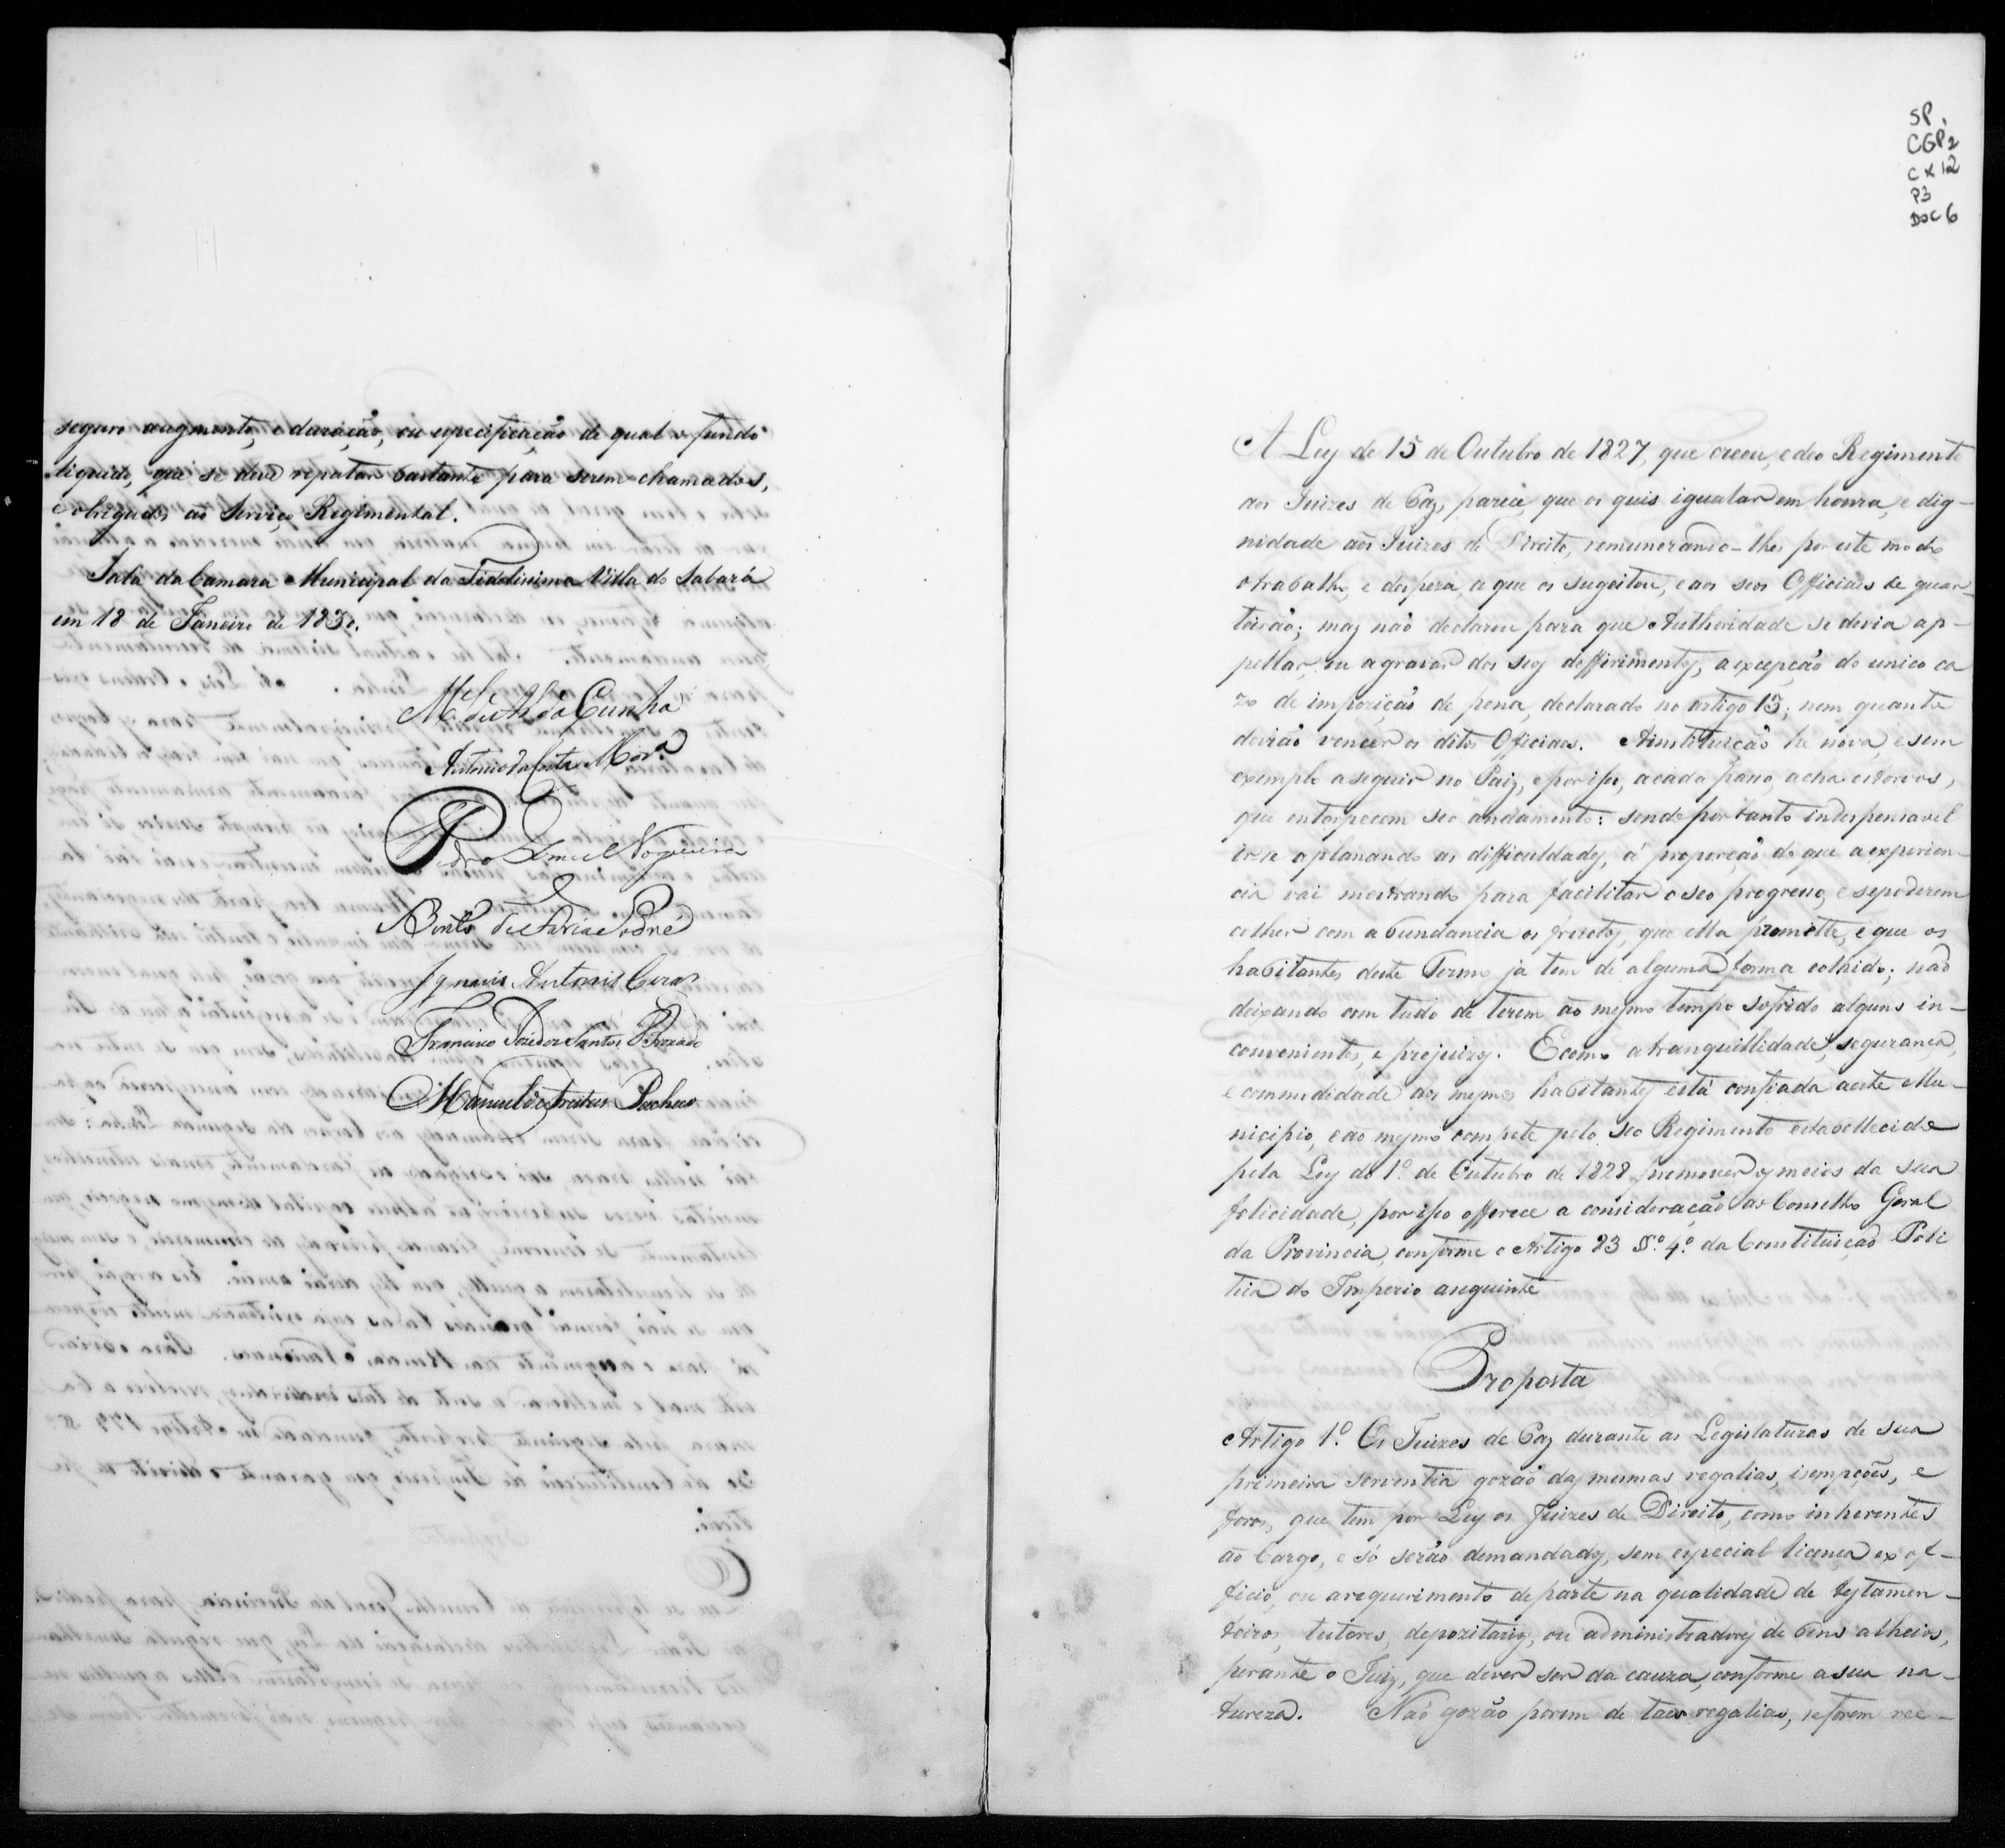 seguro augmento, e duração, ou especificação de qual o fundo
liquido, que se deve reputar bastante para serem chamados,
e obrigados ao Serviço Regimental.
Sala da Camara Municipal da Fidelissima Villa do Sabará
em 18 de Janeiro de 1830.
Antonio da Costa Mor.ª
Pedro Nogueira
Bento de Faria Sodré
Ignacio Antonio Cezar
Francisco José dos Santos Brocado
Manuel de Freitas Pacheco
SP.
CGP2
CX 12
P3
DOC 6
A Ley de 15 de Outubro de 1827, que creou, e deo Regimento
aos Juizes de Paz, parece que os quis igualar em honra, e dig-
nidade aos Juizes de Direito, remunerando-lhes por este modo
o trabalho, e despeza, a que os sugeitou, e aos seos Officiaes de quar-
teirão; maz não declarou para que Authoridade se devia ap-
pellar, ou agravar dos seos defferimentos, a excepção do unico ca
zo de impozição de pena, declarado no artigo 15; nem quanto
devião vencer os ditos Officiaes. A instituição he nova, e sem
exemplo a seguir no Paiz, e por isso, a cada passo, acha estorvos,
que entorpecem seo andamento: sendo portanto indespensavel
ir-se aplanando as difficuldades, á proporção do que a experien-
cia vai mostrando para facilitar o seo progresso, e se poderem
colher com abundancia os fructos, que ella promette, e que os
habitantes deste Termo ja tem de alguma forma colhido; não
deixando com tudo de terem ao mesmo tempo sofrido alguns in-
convenientes, e prejuizos. E como a tranquillidade, segurança,
e commudidade dos mesmos habitantes está confiada a este Mu-
nicipio, e ao mesmo compete pelo seo Regimento estabellecido
pela Ley do 1.º de Outubro de 1828 promover os meios da sua
felicidade, por isso offerece a consideração do Conselho Geral
da Provincia, conforme o Artigo 83 §.º 4.º da Constituição Poli
tica do Imperio a seguinte
Proposta
Artigo 1.º Os Juizes de Paz durante as Legislaturas de sua
primeira serventia gozão das mesmas regalias, isempções, e
foros, que tem por Ley os Juizes de Direito, como inherentes
ao Cargo, e só serão demandados, sem especial licença ex of-
ficio, ou a requerimento de parte na qualidade de testamen-
teiros, tutores, depozitarios, ou administradores de bens alheios,
perante o Juiz, que dever ser da cauza, conforme a sua na-
tureza. Não gozão porem de taes regalias, se forem ree-